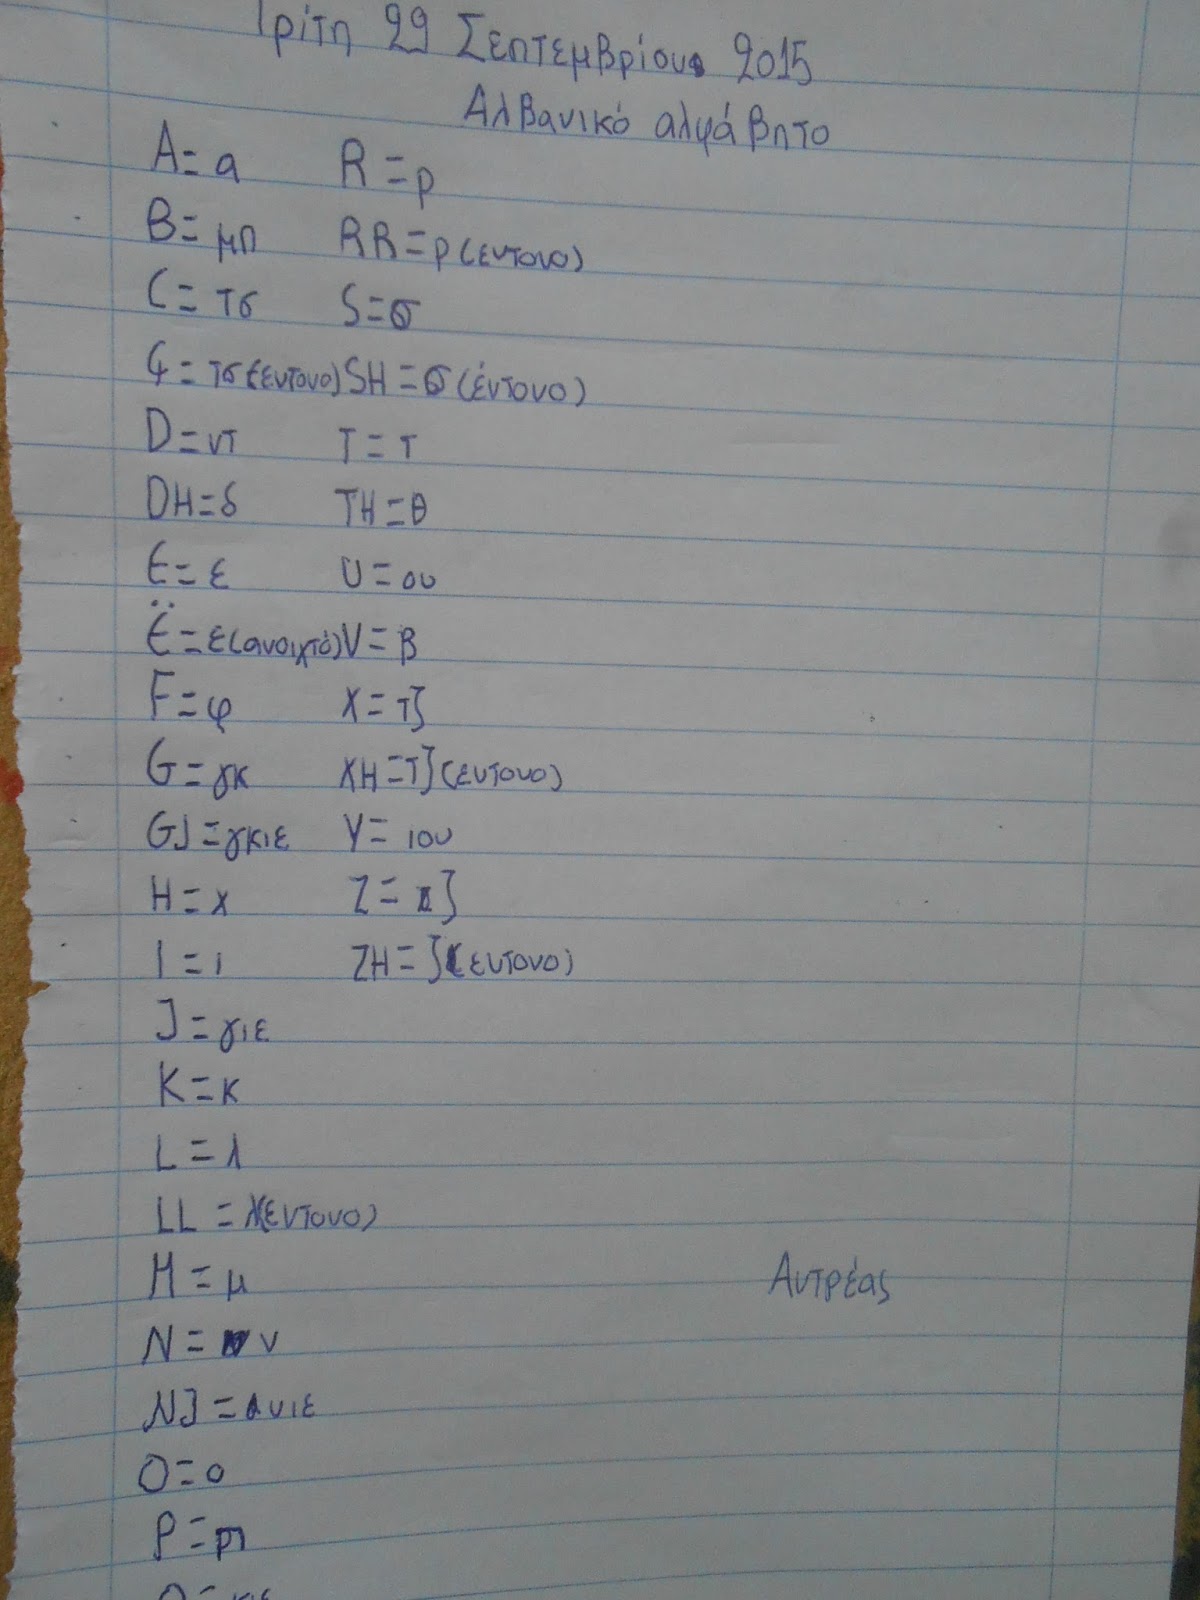 Τρίτη 29 Σεπτεμβρίους 2015
Αλβανικό αλφάβητο
A=α R=ρ
B=μπ RR=ρ(εντονο)
C=τσ S=σ
Ç=τσ(εντονο) SH=σ(έντονο)
D=ντ T=τ
DH=δ TH=θ
E=ε U=ου
Ë=ε(ανοιχτό) V=β
F=φ X=τζ
G=γκ XH=τζ(εντονο)
GJ=γκιε Y=ιου
H=χ Z=ζ
I=ι ZH=ζ(εντονο)
J=γιε
K=κ
L=λ
LL=λ(εντονο)
M=μ
Αντρέας
N=ν
NJ=νιε
O=ο
P=π
Q=κιε